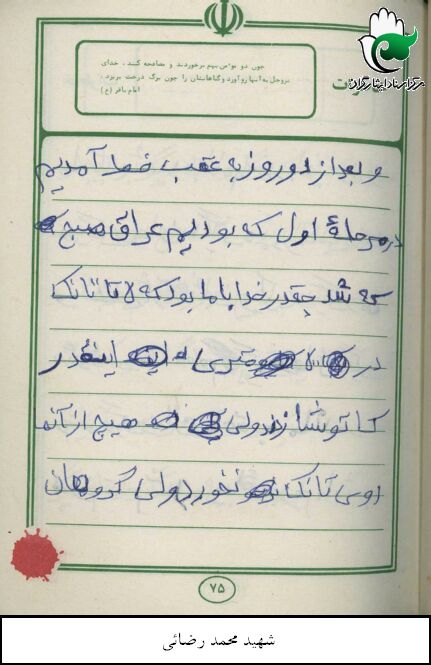 مرکز اسناد ایثارگران
چون دو مؤمن بهم برخوردند و مصافحه کنند ، خدای
عزوجل به آنها رو آورد و گناهانشان را چون برگ درخت بریزد .
امام باقر (ع)
و بعد از دو روز به عقب خط آمدیم
در مرحلهٔ اول که بودیم عراق صبح که
که شد چقدر خدا با ما بود که تا تانک
در متری اینقدر
کاتوشا زد ولی هیچ از آنها
روی تانک نخورد ولی گروهان
۷۵
شهید محمد رضائی